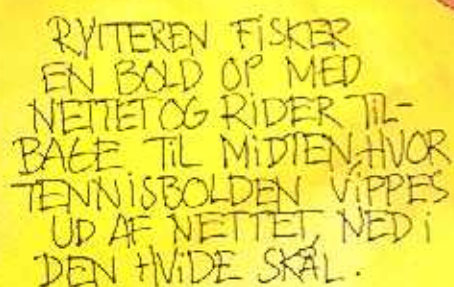 RYTTEREN FISKER
EN BOLD OP MED
NETTET OG RIDER TIL-
BAGE TIL MIDTEN HVOR
TENNISBOLDEN VIPPES
UD AF NETTET, NED I
DEN HVIDE SKÅL.